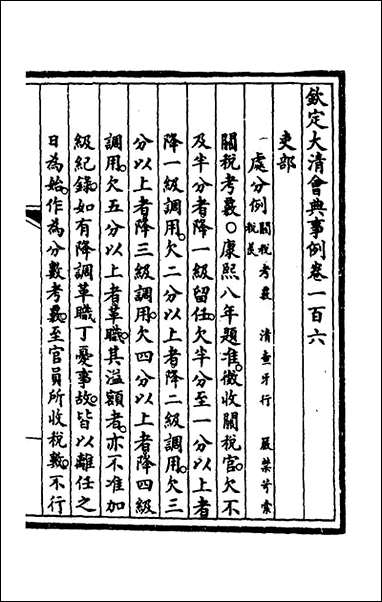 欽定大清會典事例卷一百六
吏部
處分例 關稅考覈 清查牙行 嚴禁苛索
稅羨
關稅考覈○康熙八年題准。徵收關稅官。欠不
及半分者降一級留任。欠半分至一分以上者
降一級調用。欠二分以上者降二級調用。欠三
分以上者降三級調用。欠四分以上者降四級
調用。欠五分以上者革職。其溢額者。亦不准加
級紀錄。如有降調革職丁憂事故。皆以離任之
日為始。作為分數考覈。至官員所收稅數。不行